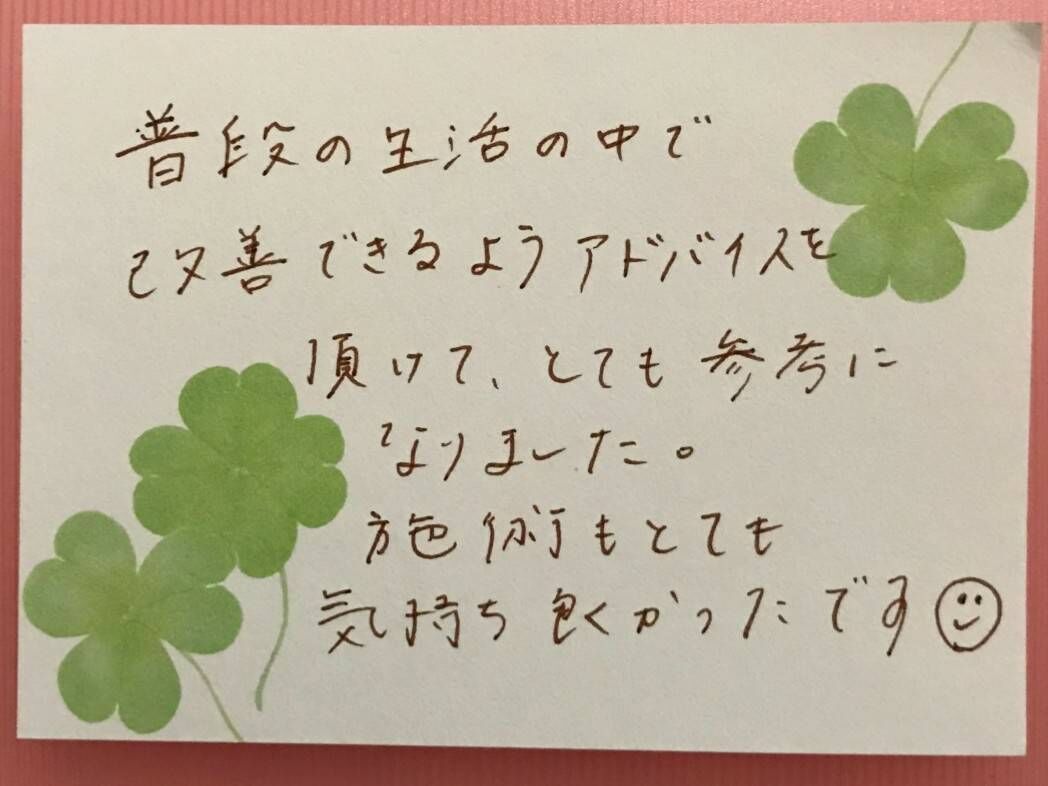 普段の生活の中で
改善できるようアドバイスを
頂けて、とても参考に
なりました。
施術もとても
気持ち良くかったです